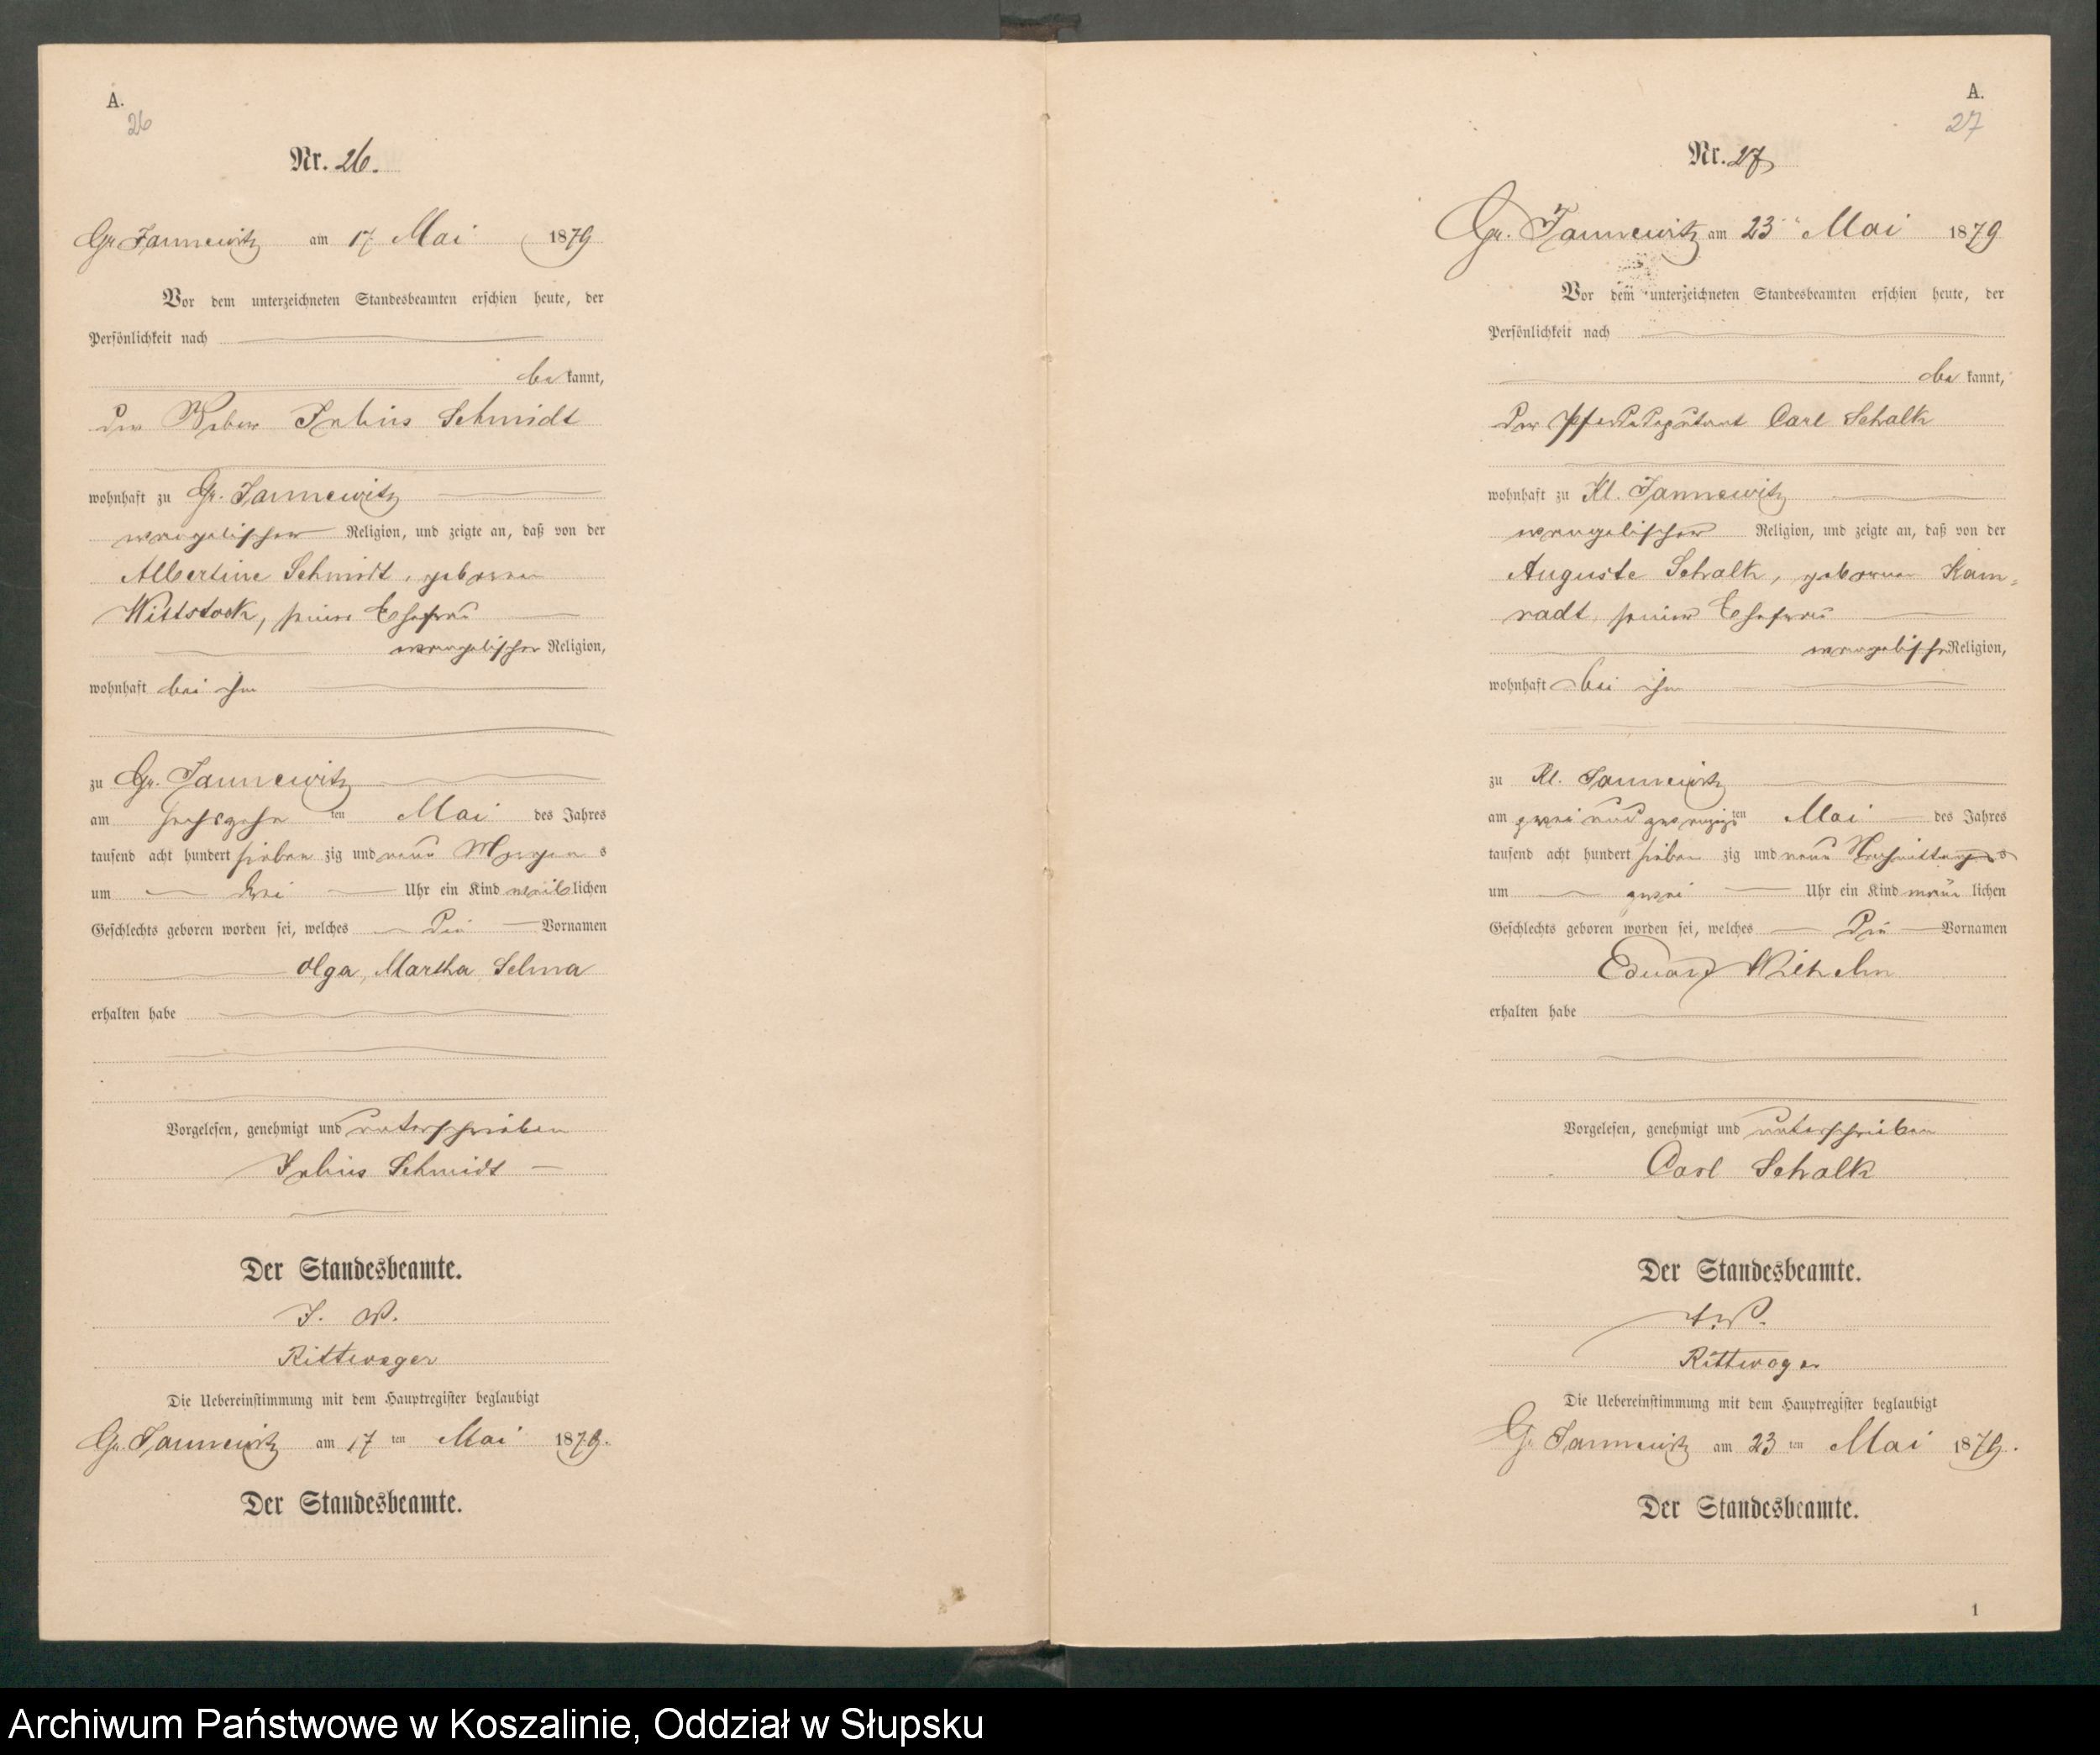 A.
26
Nr. 26.
Gr Jannewitz am 17 Mai 1879
Vor dem unterzeichneten Standesbeamten erschien heute, der
Persönlichkeit nach
be kannt,
der Weber Julius Schmidt
wohnhaft zu Gr. Jannewitz
evangelischer Religion, und zeigte an, daß von der
Albertine Schmidt, geborene
Wittstock, seine Ehefrau
evangelischer Religion,
wohnhaft bei ihm
zu Gr. Jannewitz
am sechszehn ten Mai des Jahres
tausend acht hundert sieben zig und neun Morgen s
um drei Uhr ein Kind weib lichen
Geschlechts geboren worden sei, welches die Vornamen
Olga, Martha Selma
erhalten habe
Vorgelesen, genehmigt und unterschrieben
Julius Schmidt
Der Standesbeamte.
J. V.
Rittweger
Die Uebereinstimmung mit dem Hauptregister beglaubigt
Gr. Jannewitz am 17 ten Mai 1879.
Der Standesbeamte.
A.
27
Nr. 27
Gr. Jannewitz am 23 Mai 1879
Vor dem unterzeichneten Standesbeamten erschien heute, der
Persönlichkeit nach
be kannt,
der Carl Schalk
wohnhaft zu Kl. Jannewitz
evangelischer Religion, und zeigte an, daß von der
Auguste Schalk, geborene Kam-
radt, seiner Ehefrau
evangelischer Religion,
wohnhaft bei ihm
zu Kl. Jannewitz
am zwei und zwanzig ten Mai des Jahres
tausend acht hundert sieben zig und neun Nachmittag s
um zwei Uhr ein Kind män lichen
Geschlechts geboren worden sei, welches die Vornamen
Eduard Wilhelm
erhalten habe
Vorgelesen, genehmigt und unterschrieben
Carl Schalk
Der Standesbeamte.
J. V.
Rittweger
Die Uebereinstimmung mit dem Hauptregister beglaubigt
Gr Jannewitz am 23 ten Mai 1879.
Der Standesbeamte.
1
Archiwum Państwowe w Koszalinie, Oddział w Słupsku